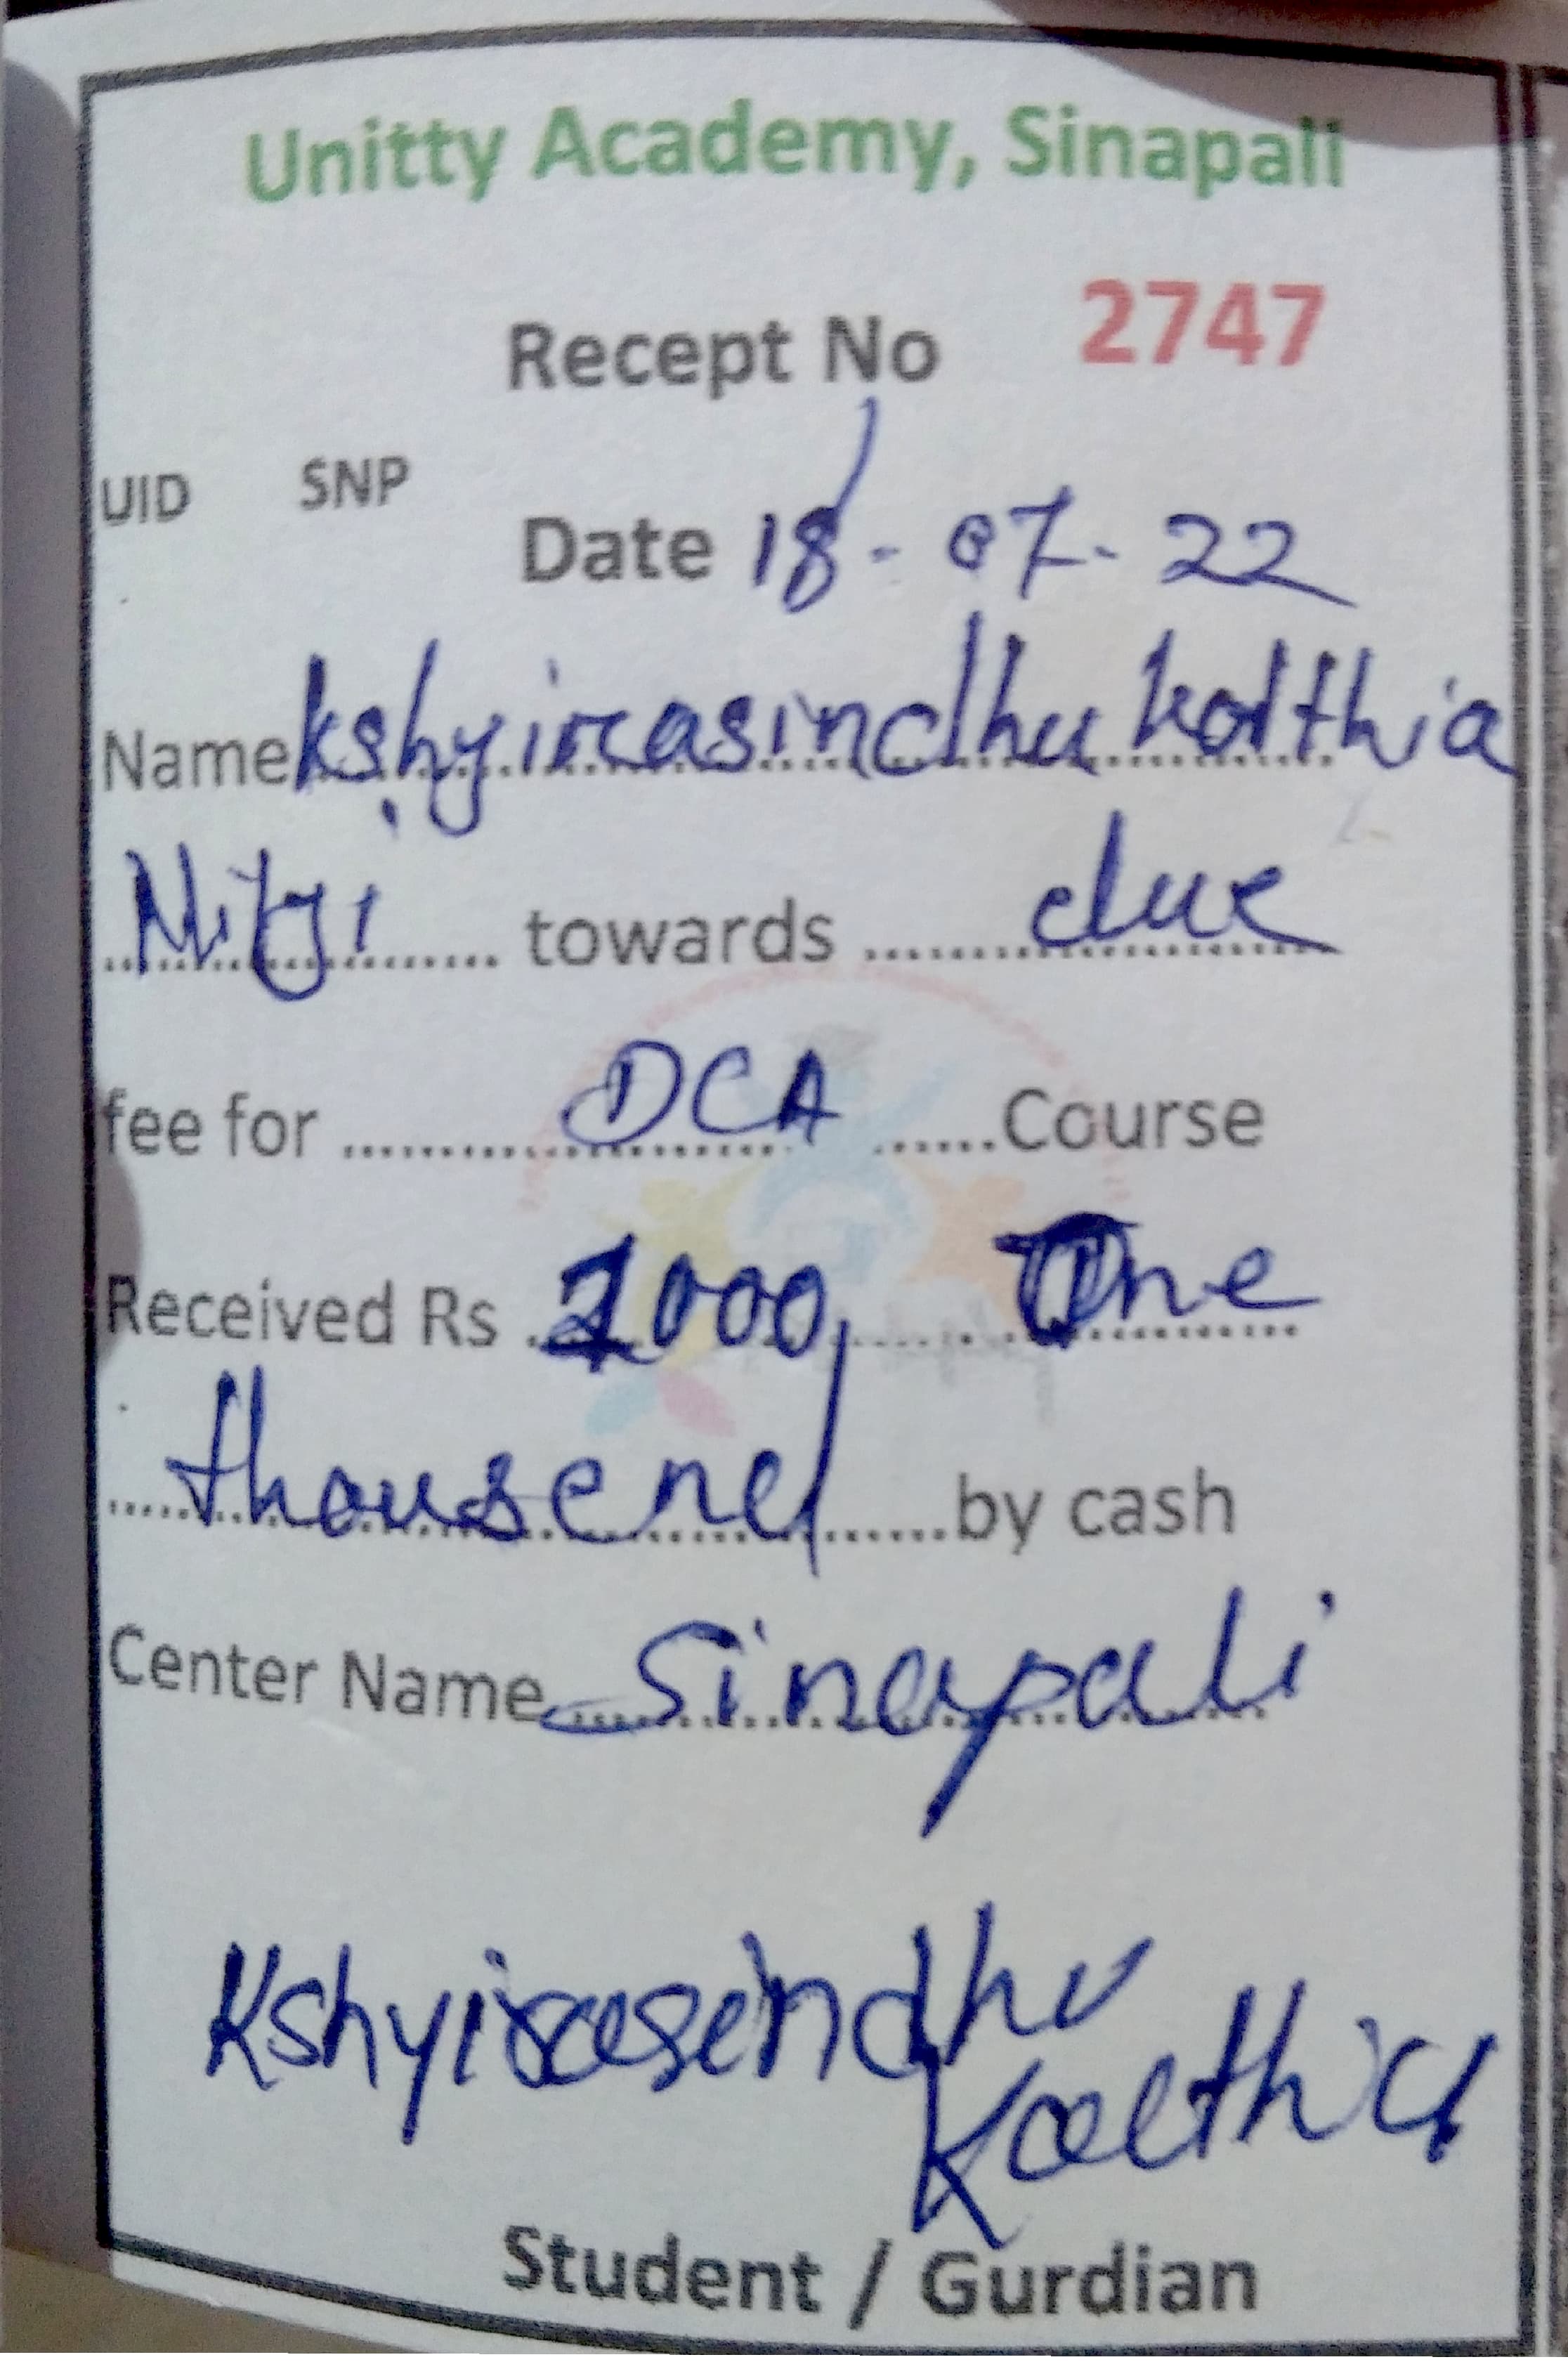 Unitty Academy, Sinapali
Recept No 2747
UID SNP
Date 18-07-22
Name kshyirasindhu kalthia
........ towards ........ due
fee for ........ DCA ......Course
Received Rs 1000 ........ One
........ thousend ........by cash
Center Name Sinapali
Kshyirasindhu
Kalthia
Student / Gurdian